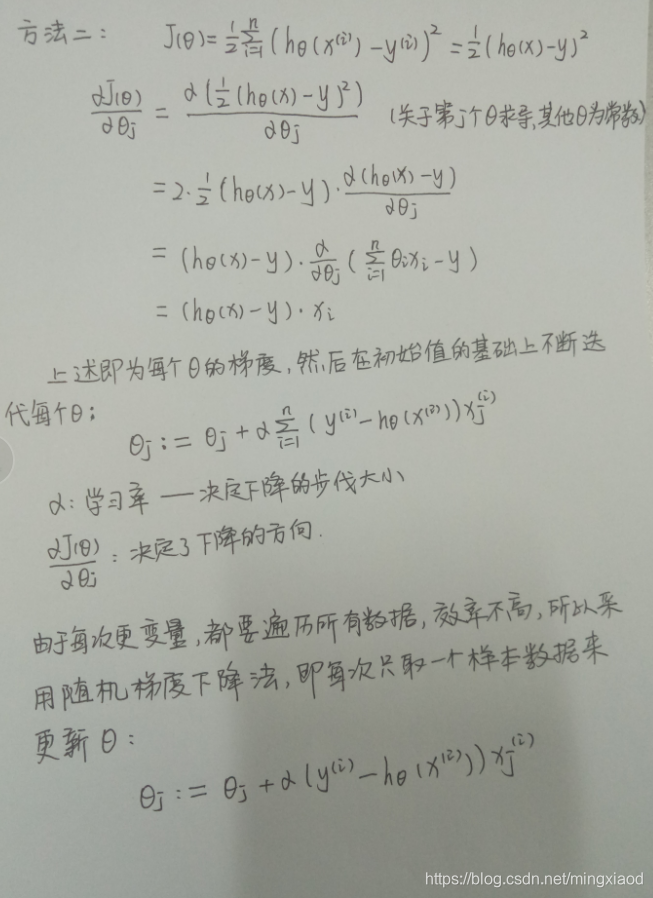 方法二: J(θ)=½∑ⁿᵢ₌₁(hθ(x⁽ⁱ⁾)-y⁽ⁱ⁾)²=½(hθ(x)-y)²
αJ(θ)/αθj = α(½(hθ(x)-y)²)/αθj (关于第j个θ求导,其他θ为常数)
=2·½(hθ(x)-y)·α(hθ(x)-y)/αθj
= (hθ(x)-y)·α/αθj(∑ⁿᵢ₌₁θixi-y)
= (hθ(x)-y)·xi
上述即为每个θ的梯度,然后在初始值的基础上不断迭
代每个θ;
θj := θj + α∑ⁿᵢ₌₁(y⁽ⁱ⁾-hθ(x⁽ⁱ⁾))xj⁽ⁱ⁾
α: 学习率 — 决定下降的步伐大小
αJ(θ)/αθj : 决定了下降的方向.
由于每次更变量,都要遍历所有数据,效率不高,所以采
用随机梯度下降法,即每次只取一个样本数据来
更新θ:
θj := θj + α(y⁽ⁱ⁾-hθ(x⁽ⁱ⁾))xj⁽ⁱ⁾
https://blog.csdn.net/mingxiaod